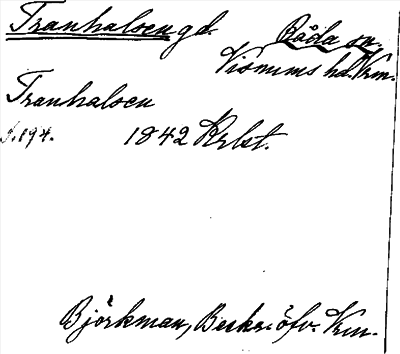 Tranhalsen gd. Råda sn.
Visnums hd. Vrm.
Tranhalsen
s. 194. 1842 Krlst.
Björkman, Beskr. öfv. Vrm.